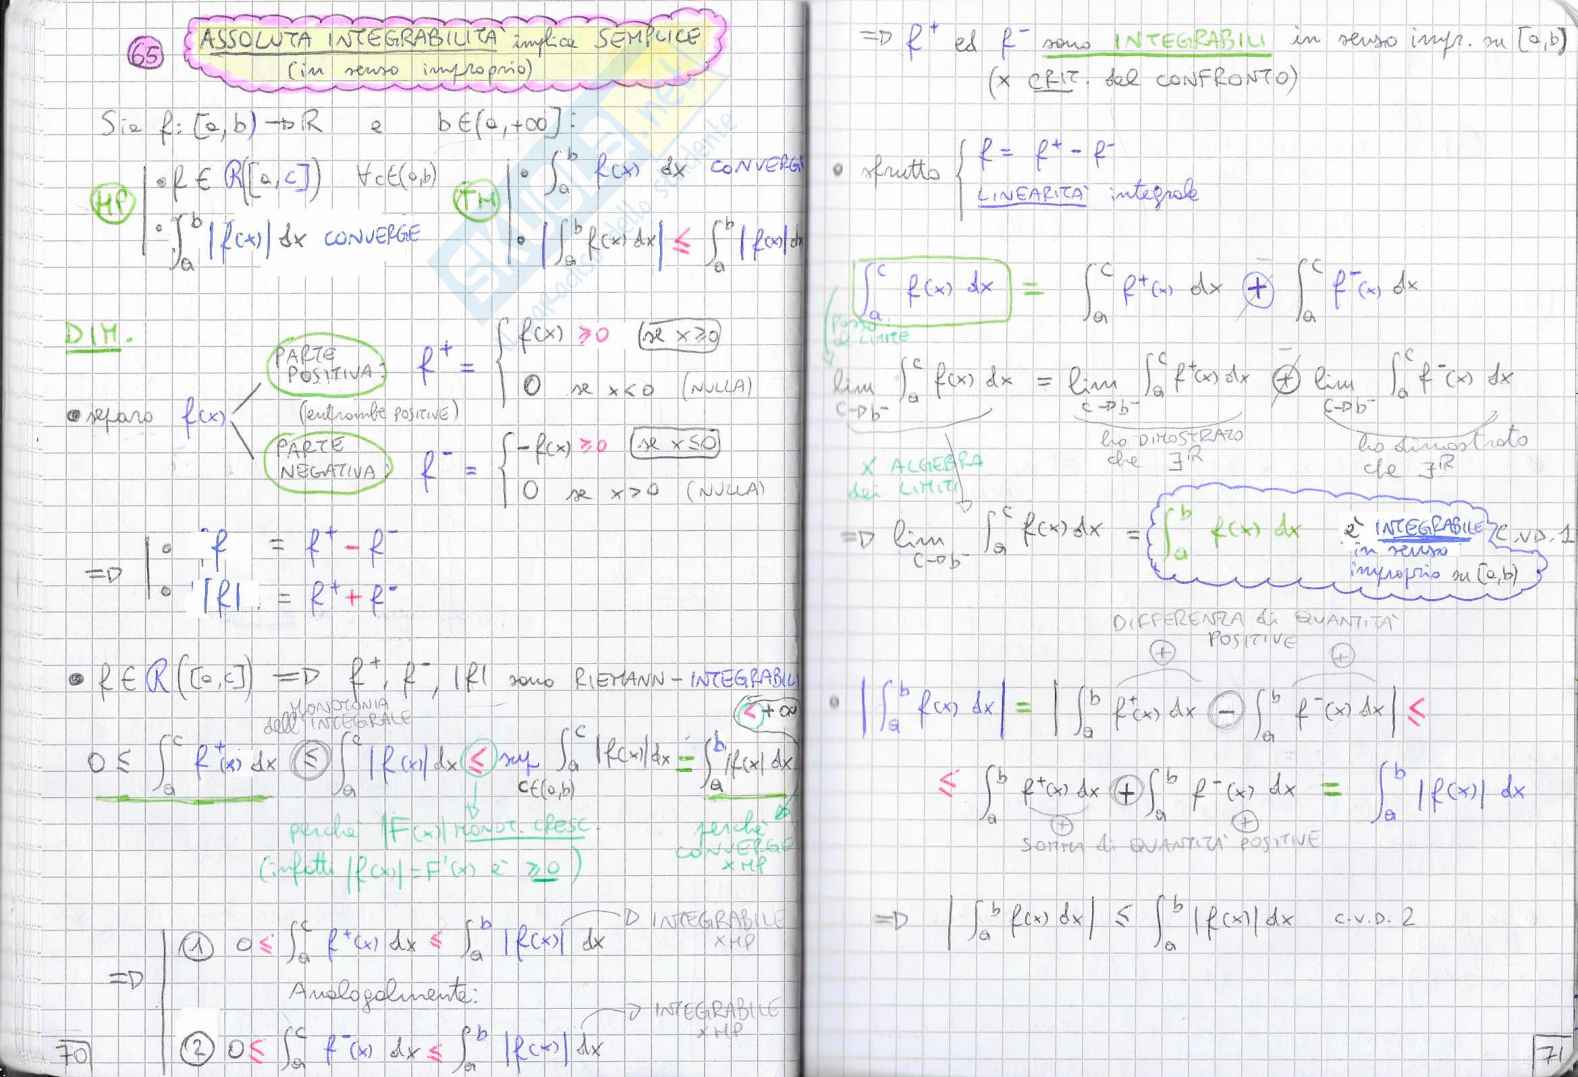 65 ASSOLUTA INTEGRABILITA' implica SEMPLICE
(in senso improprio)
Sia f: [a,b) → R e b∈(a,+∞]:
HP • f ∈ R([a,c]) ∀c∈(a,b)
• ∫_a^b |f(x)| dx CONVERGE
TH • ∫_a^b f(x) dx CONVERGE
• |∫_a^b f(x) dx| ≤ ∫_a^b |f(x)| dx
DIM.
• separo f(x)
PARTE POSITIVA: f⁺ = { f(x) ≥0 (se x≥0)
0 se x<0 (NULLA)
(entrambe POSITIVE)
PARTE NEGATIVA: f⁻ = { -f(x) ≥0 (se x≤0)
0 se x>0 (NULLA)
⇒ • f = f⁺ - f⁻
• |f| = f⁺ + f⁻
• f ∈ R([a,c]) ⇒ f⁺, f⁻, |f| sono RIEMANN-INTEGRABILI
MONOTONIA
dell'INTEGRALE
< +∞
0 ≤ ∫_a^c f⁺(x) dx ≤ ∫_a^c |f(x)| dx ≤ sup_{c∈(a,b)} ∫_a^c |f(x)| dx = ∫_a^b |f(x)| dx
perché |F(x)| MONOT. CRESC.
(infatti |f(x)| = F'(x) è ≥0)
perché
CONVERGE
x HP
⇒ ① 0 ≤ ∫_a^c f⁺(x) dx ≤ ∫_a^b |f(x)| dx → INTEGRABILE
x HP
Analogalmente:
② 0 ≤ ∫_a^c f⁻(x) dx ≤ ∫_a^b |f(x)| dx → INTEGRABILE
x HP
70
⇒ f⁺ ed f⁻ sono INTEGRABILI in senso impr. su [a,b)
(x CRIT. del CONFRONTO)
• sfrutto { f = f⁺ - f⁻
LINEARITA' integrale
∫_a^c f(x) dx = ∫_a^c f⁺(x) dx + ∫_a^c f⁻(x) dx
passo
al LIMITE
lim_{c→b⁻} ∫_a^c f(x) dx = lim_{c→b⁻} ∫_a^c f⁺(x) dx + lim_{c→b⁻} ∫_a^c f⁻(x) dx
ho DIMOSTRATO
che ∃ R
ho dimostrato
che ∃ R
x ALGEBRA
dei LIMITI
⇒ lim_{c→b⁻} ∫_a^c f(x) dx = ∫_a^b f(x) dx è INTEGRABILE
in senso
improprio su [a,b)
C.V.D. 1
DIFFERENZA di QUANTITA'
POSITIVE
+ +
• |∫_a^b f(x) dx| = |∫_a^b f⁺(x) dx - ∫_a^b f⁻(x) dx| ≤
≤ ∫_a^b f⁺(x) dx + ∫_a^b f⁻(x) dx = ∫_a^b |f(x)| dx
+ +
SOMMA di QUANTITA' POSITIVE
⇒ |∫_a^b f(x) dx| ≤ ∫_a^b |f(x)| dx c.v.d. 2
71